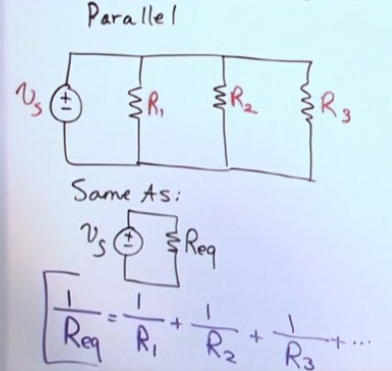 Parallel
Vs + - R1 R2 R3
Same As:
Vs + - Req
1/Req = 1/R1 + 1/R2 + 1/R3 + ...